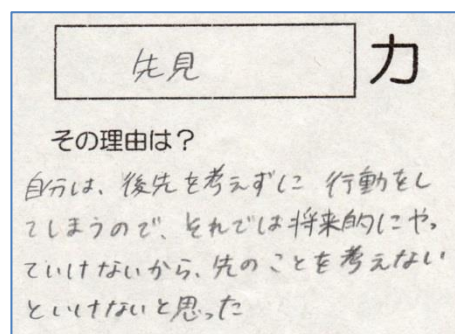 先見 力
その理由は？
自分は、後先を考えずに 行動をし
てしまうので、それでは将来的にやっ
ていけないから、先のことを考えない
といけないと思った